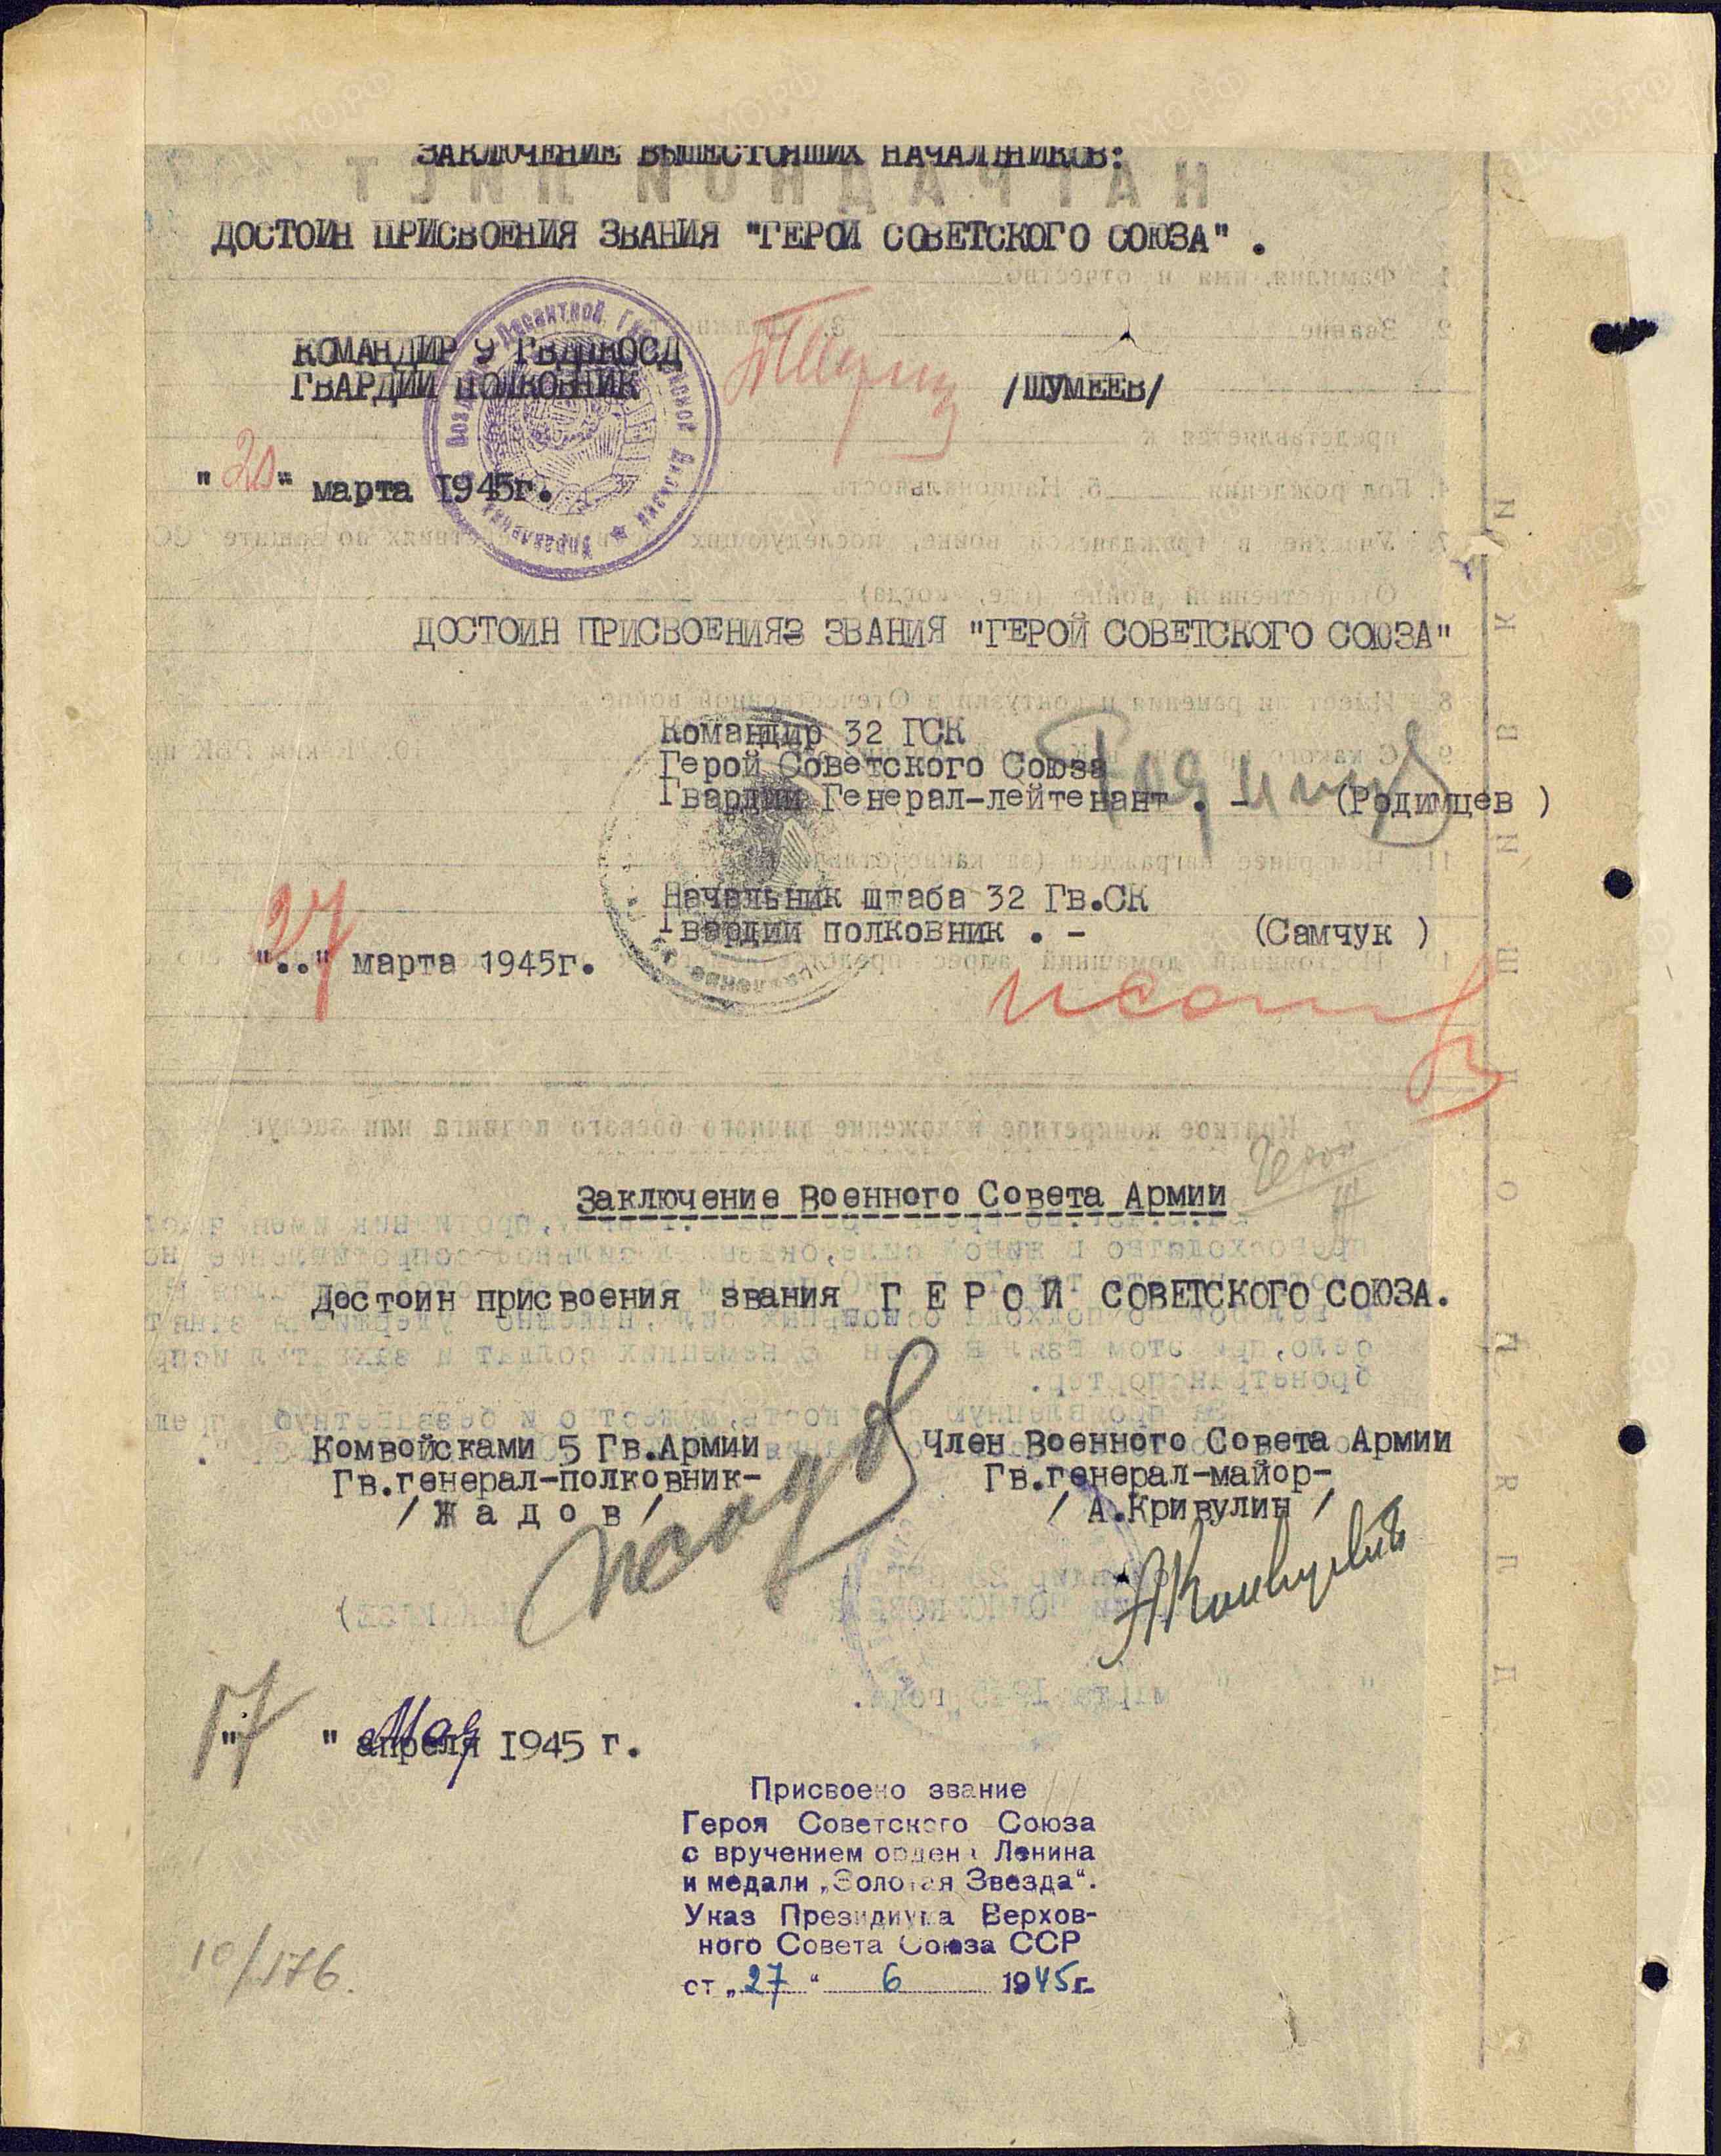 ЗАКЛЮЧЕНИЕ ВЫШЕСТОЯЩИХ НАЧАЛЬНИКОВ:
ДОСТОИН ПРИСВОЕНИЯ ЗВАНИЯ "ГЕРОЙ СОВЕТСКОГО СОЮЗА".
КОМАНДИР 9 ГВ
ГВАРДИИ ПОЛКОВНИК
/ШУМЕЕВ/
"20" марта 1945г.
ДОСТОИН ПРИСВОЕНИЯЗ ЗВАНИЯ "ГЕРОЙ СОВЕТСКОГО СОЮЗА"
Командир 32 ГСК
Герой Советского Союза
Гвардии Генерал-лейтенант . - (Родимцев )
Начальник штаба 32 Гв.СК
Гвардии полковник . - (Самчук )
27
".." марта 1945г.
Заключение Военного Совета Армии
Достоин присвоения звания Г Е Р О Й СОВЕТСКОГО СОЮЗА.
Комвойсками 5 Гв.Армии
Гв.генерал-полковник-
/ Ж а д о в /
Член Военного Совета Армии
Гв.генерал-майор-
/ А.Кривулин /
"17" апреля Мая 1945 г.
Присвоено звание
Героя Советского Союза
с вручением ордена Ленина
и медали „Золотая Звезда“.
Указ Президиума Верхов-
ного Совета Союза ССР
от „27“ 6 1945г.
10/176.